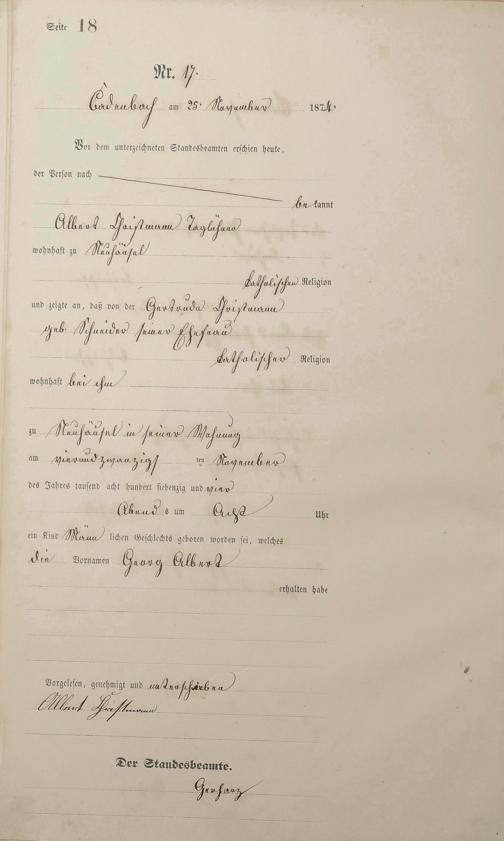 Seite 18
Nr. 17.
Cadenbach am 25. November 1874.
Vor dem unterzeichneten Standesbeamten erschien heute,
der Person nach
bekannt
Albert Christmann Taglöhner
wohnhaft zu Neuhäusel
katholischen Religion
und zeigte an, daß von der Gertruda Christmann
geb. Schneider seiner Ehefrau
katholischer Religion
wohnhaft bei ihm
zu Neuhäusel in seiner Wohnung
am vierundzwanzigsten November
des Jahres tausend acht hundert siebenzig und vier
Abends um Acht Uhr
ein Kind Männlichen Geschlechts geboren worden sei, welches
die Vornamen Georg Albert
erhalten habe
Vorgelesen, genehmigt und unterschrieben
Albert Christmann
Der Standesbeamte.
Gerharz